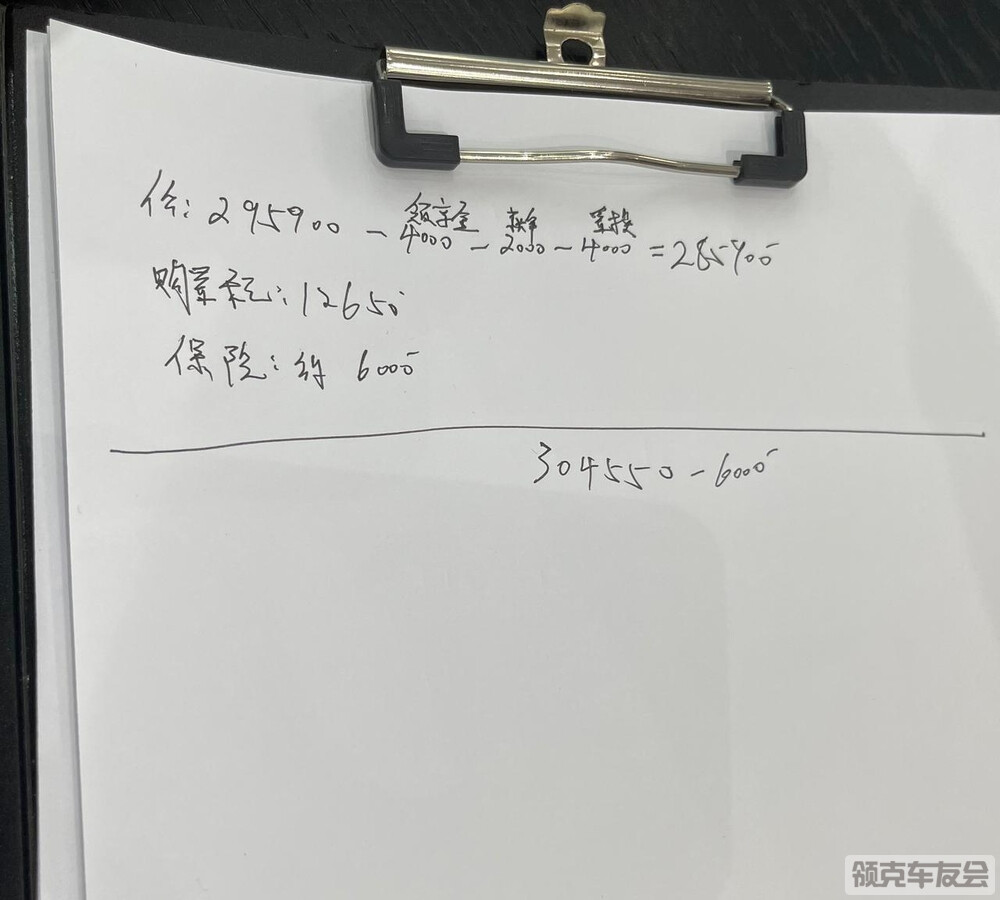 价: 295900 - 4000 - 2000 - 4000 = 285900
置换
购置税: 12650
保险: 约 6000
304550 - 6000
领克车友会